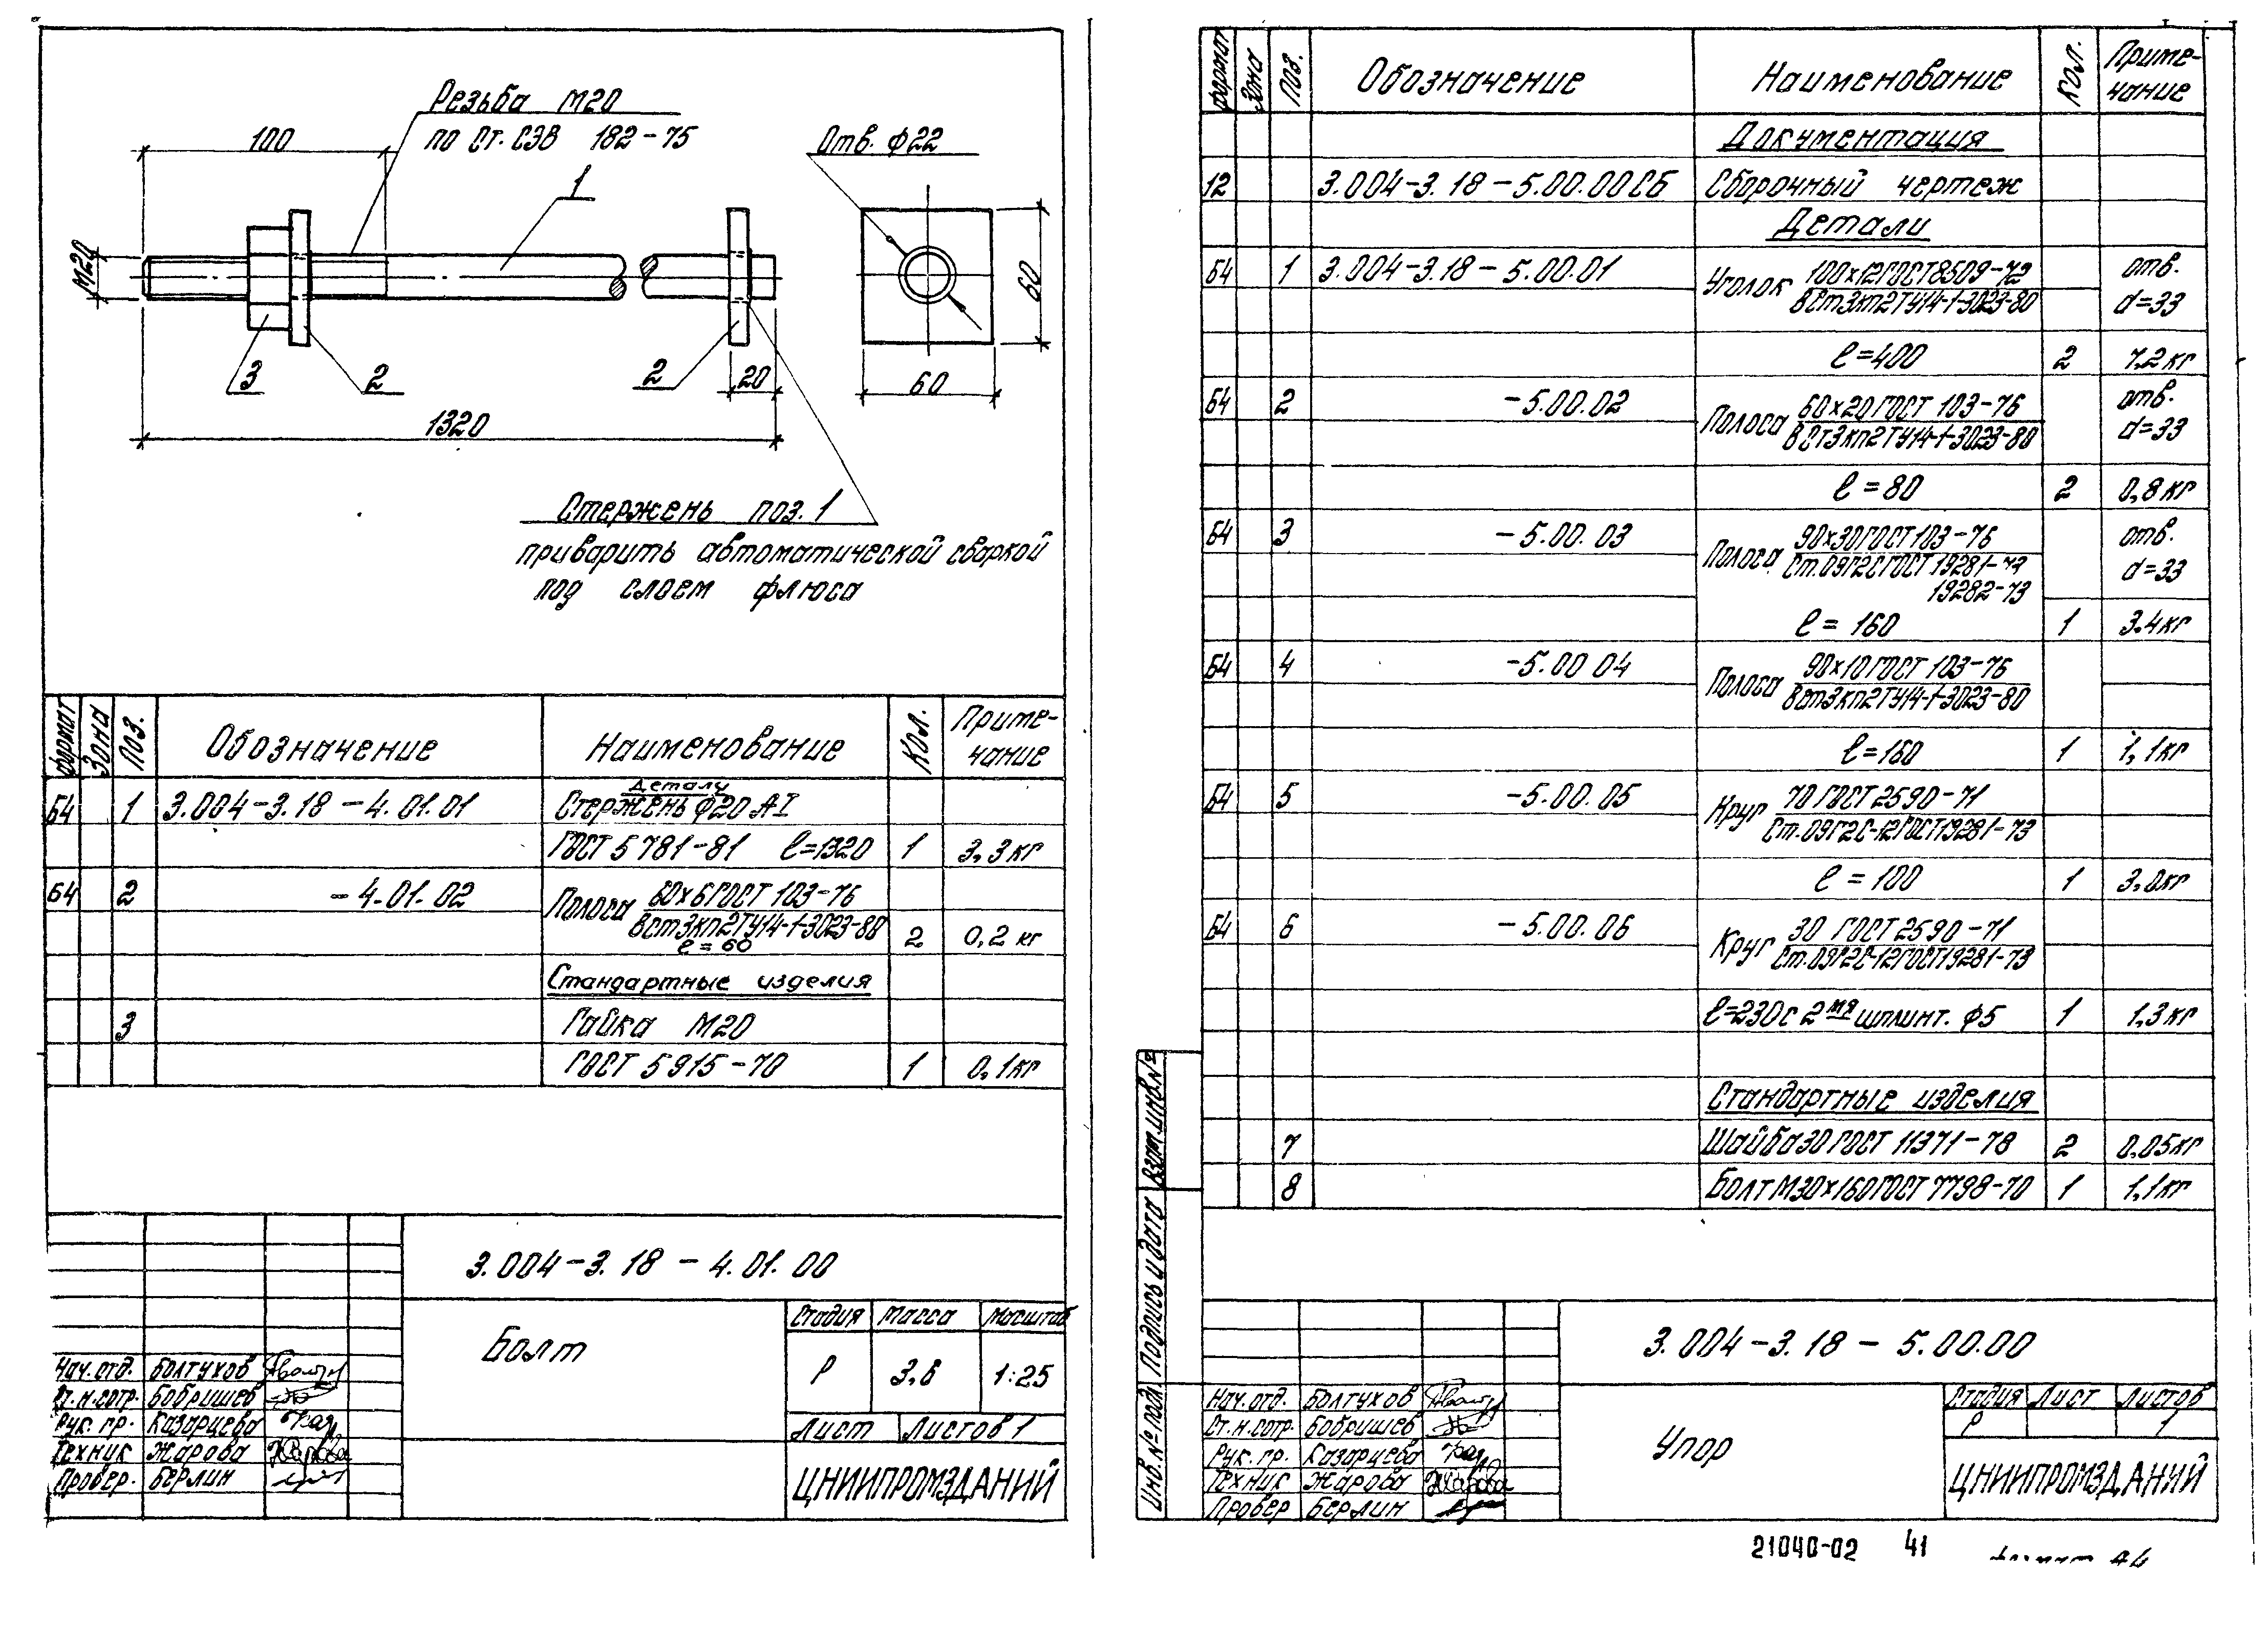 Резьба М20
по Ст. СЭВ 182-75
100
1
Отв. ф22
М20
60
3
2
2
20
60
1320
Стержень поз. 1
приварить автоматической сваркой
под слоем флюса
формат Зона Поз. Обозначение Наименование Кол. Приме-
чание
Детали
Б4 1 3.004-3.18-4.01.01 Стержень ф20 АI
ГОСТ 5781-81 ℓ=1320 1 3,3кг
Б4 2 -4.01.02 Полоса 60х6 ГОСТ 103-76
ВСт3кп2 ТУ14-1-3023-80
ℓ=60 2 0,2 кг
Стандартные изделия
3 Гайка М20
ГОСТ 5915-70 1 0,1кг
3.004-3.18-4.01.00
Болт
Стадия Масса Масштаб
Р 3,6 1:25
Лист Листов 1
ЦНИИПРОМЗДАНИЙ
Нач.отд. Болтухов
Ст.н.сотр. Бобришев
Рук.гр. Казарцева
Техник Жарова
Провер. Берлин
формат Зона Поз. Обозначение Наименование Кол. Приме-
чание
Документация
12 3.004-3.18-5.00.00СБ Сборочный чертеж
Детали
Б4 1 3.004-3.18-5.00.01 Уголок 100х12 ГОСТ 8509-72 отв.
ВСт3кп2 ТУ14-1-3023-80 d=33
ℓ=400 2 7,2кг
Б4 2 -5.00.02 Полоса 60х20 ГОСТ 103-76 отв.
ВСт3кп2 ТУ14-1-3023-80 d=33
ℓ=80 2 0,8кг
Б4 3 -5.00.03 Полоса 90х30 ГОСТ 103-76 отв.
Ст.09Г2С ГОСТ 19281-73 d=33
19282-73
ℓ=160 1 3.4кг
Б4 4 -5.00 04 Полоса 90х10 ГОСТ 103-76
ВСт3кп2 ТУ14-1-3023-80
ℓ=160 1 1,1кг
Б4 5 -5.00.05 Круг 70 ГОСТ 2590-71
Ст.09Г2С-12 ГОСТ 19281-73
ℓ=100 1 3,0кг
Б4 6 -5.00.06 Круг 30 ГОСТ 2590-71
Ст.09Г2С-12 ГОСТ 19281-73
ℓ=230 с 2мя шплинт. ф5 1 1,3кг
Стандартные изделия
7 Шайба 30 ГОСТ 11371-78 2 0,05кг
8 Болт М30х160 ГОСТ 7798-70 1 1,1кг
Взам.инв.№
Подпись и дата
Инв.№ подл.
3.004-3.18-5.00.00
Упор
Стадия Лист Листов
Р 1
ЦНИИПРОМЗДАНИЙ
Нач.отд. Болтухов
Ст.н.сотр. Бобришев
Рук.гр. Казарцева
Техник Жарова
Провер Берлин
21040-02 41